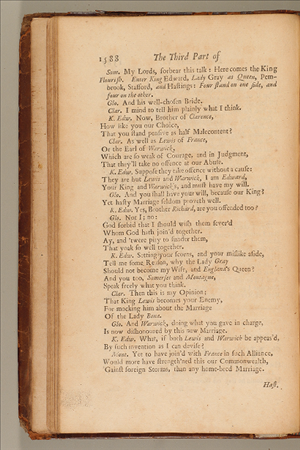 1588 The Third Part of
Som. My Lords, forbear this talk: Here comes the King
Flourish. Enter King Edward, Lady Gray as Queen, Pem-
brook, Stafford, and Hastings: Four stand on one side, and
four on the other.
Glo. And his well-chosen Bride.
Clar. I mind to tell him plainly what I think.
K. Edw. Now, Brother of Clarence,
How like you our Choice,
That you stand pensive as half Malecontent?
Clar. As well as Lewis of France,
Or the Earl of Warwick,
Which are so weak of Courage, and in Judgment,
That they'll take no offence at our Abuse.
K. Edw. Suppose they take offence without a cause:
They are but Lewis and Warwick, I am Edward,
Your King and Warwick's, and must have my will.
Glo. And you shall have your will, because our King:
Yet hasty Marriage seldom proveth well.
K. Edw. Yea, Brother Richard, are you offended too?
Glo. Not I; no:
God forbid that I should wish them sever'd
Whom God hath join'd together.
Ay, and 'twere pity to sunder them,
That yoak so well together.
K. Edw. Setting your scorns, and your mislike aside,
Tell me some Reason, why the Lady Gray
Should not become my Wife, and England's Queen?
And you too, Somerset and Montague,
Speak freely what you think.
Clar. Then this is my Opinion:
That King Lewis becomes your Enemy,
For mocking him about the Marriage
Of the Lady Bona.
Glo. And Warwick, doing what you gave in charge,
Is now dishonoured by this new Marriage.
K. Edw. What, if both Lewis and Warwick be appeas'd,
By such invention as I can devise?
Mont. Yet to have join'd with France in such Alliance,
Would more have strength'ned this our Commonwealth,
'Gainst foreign Storms, than any home-bred Marriage.
Hast.